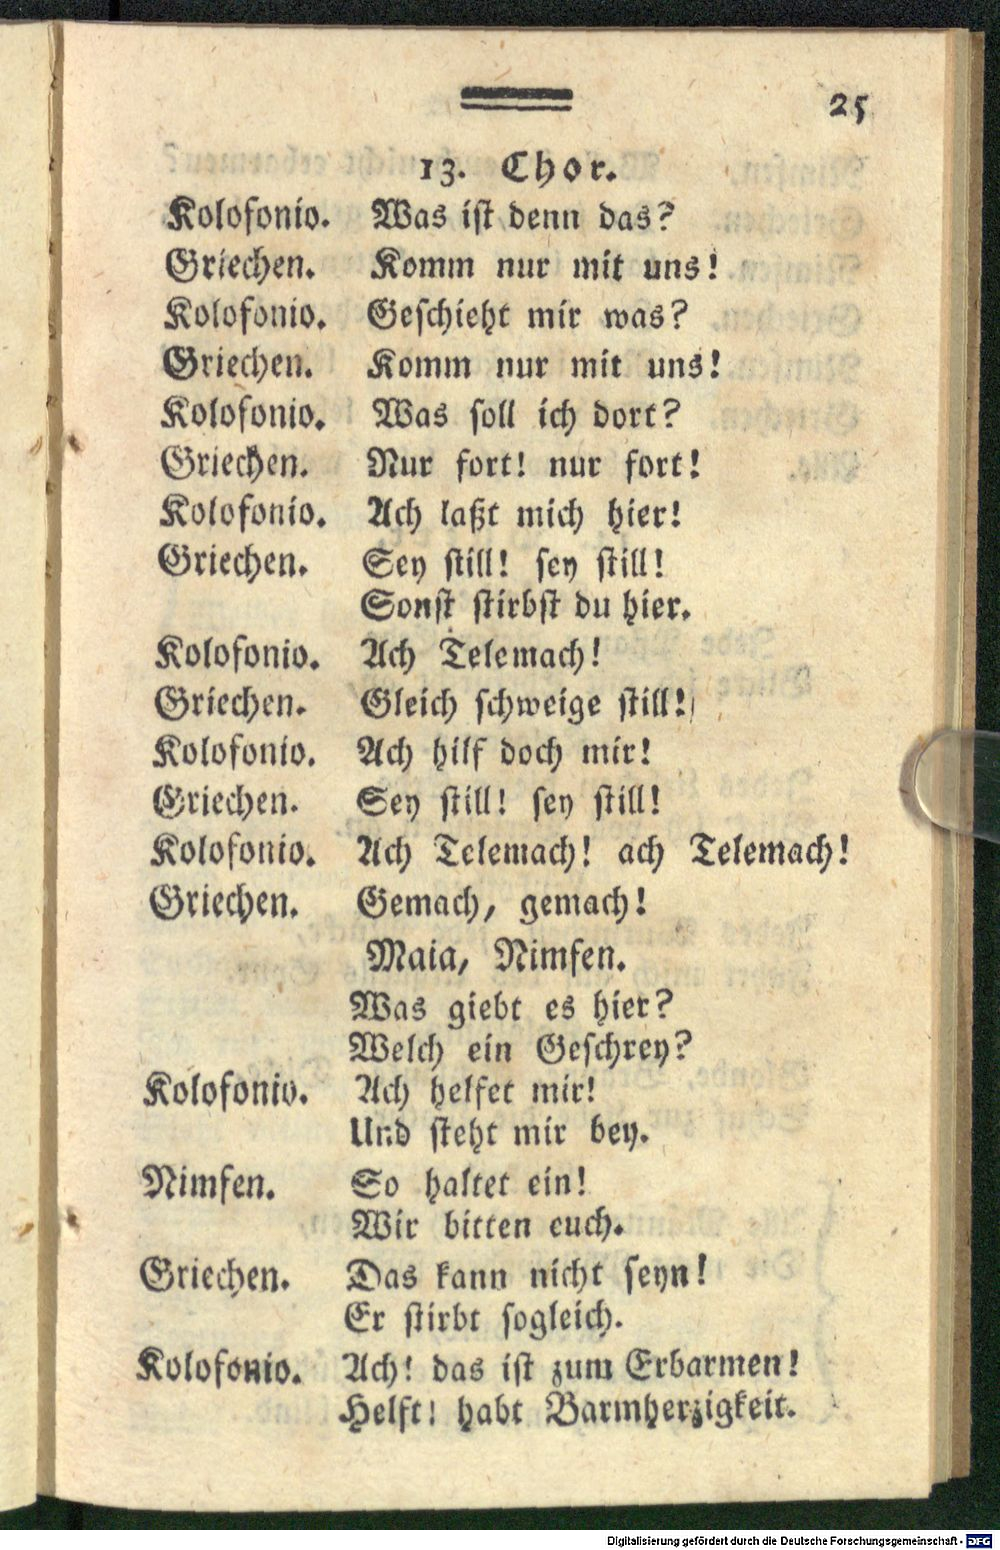 25
13. Chor.
Kolofonio. Was ist denn das?
Griechen. Komm nur mit uns!
Kolofonio. Geschieht mir was?
Griechen. Komm nur mit uns!
Kolofonio. Was soll ich dort?
Griechen. Nur fort! nur fort!
Kolofonio. Ach laßt mich hier!
Griechen. Sey still! sey still!
Sonst stirbst du hier.
Kolofonio. Ach Telemach!
Griechen. Gleich schweige still!
Kolofonio. Ach hilf doch mir!
Griechen. Sey still! sey still!
Kolofonio. Ach Telemach! ach Telemach!
Griechen. Gemach, gemach!
Maia, Nimfen.
Was giebt es hier?
Welch ein Geschrey?
Kolofonio. Ach helfet mir!
Und steht mir bey.
Nimfen. So haltet ein!
Wir bitten euch.
Griechen. Das kann nicht seyn!
Er stirbt sogleich.
Kolofonio. Ach! das ist zum Erbarmen!
Helft! habt Barmherzigkeit.
Digitalisierung gefördert durch die Deutsche Forschungsgemeinschaft - DFG